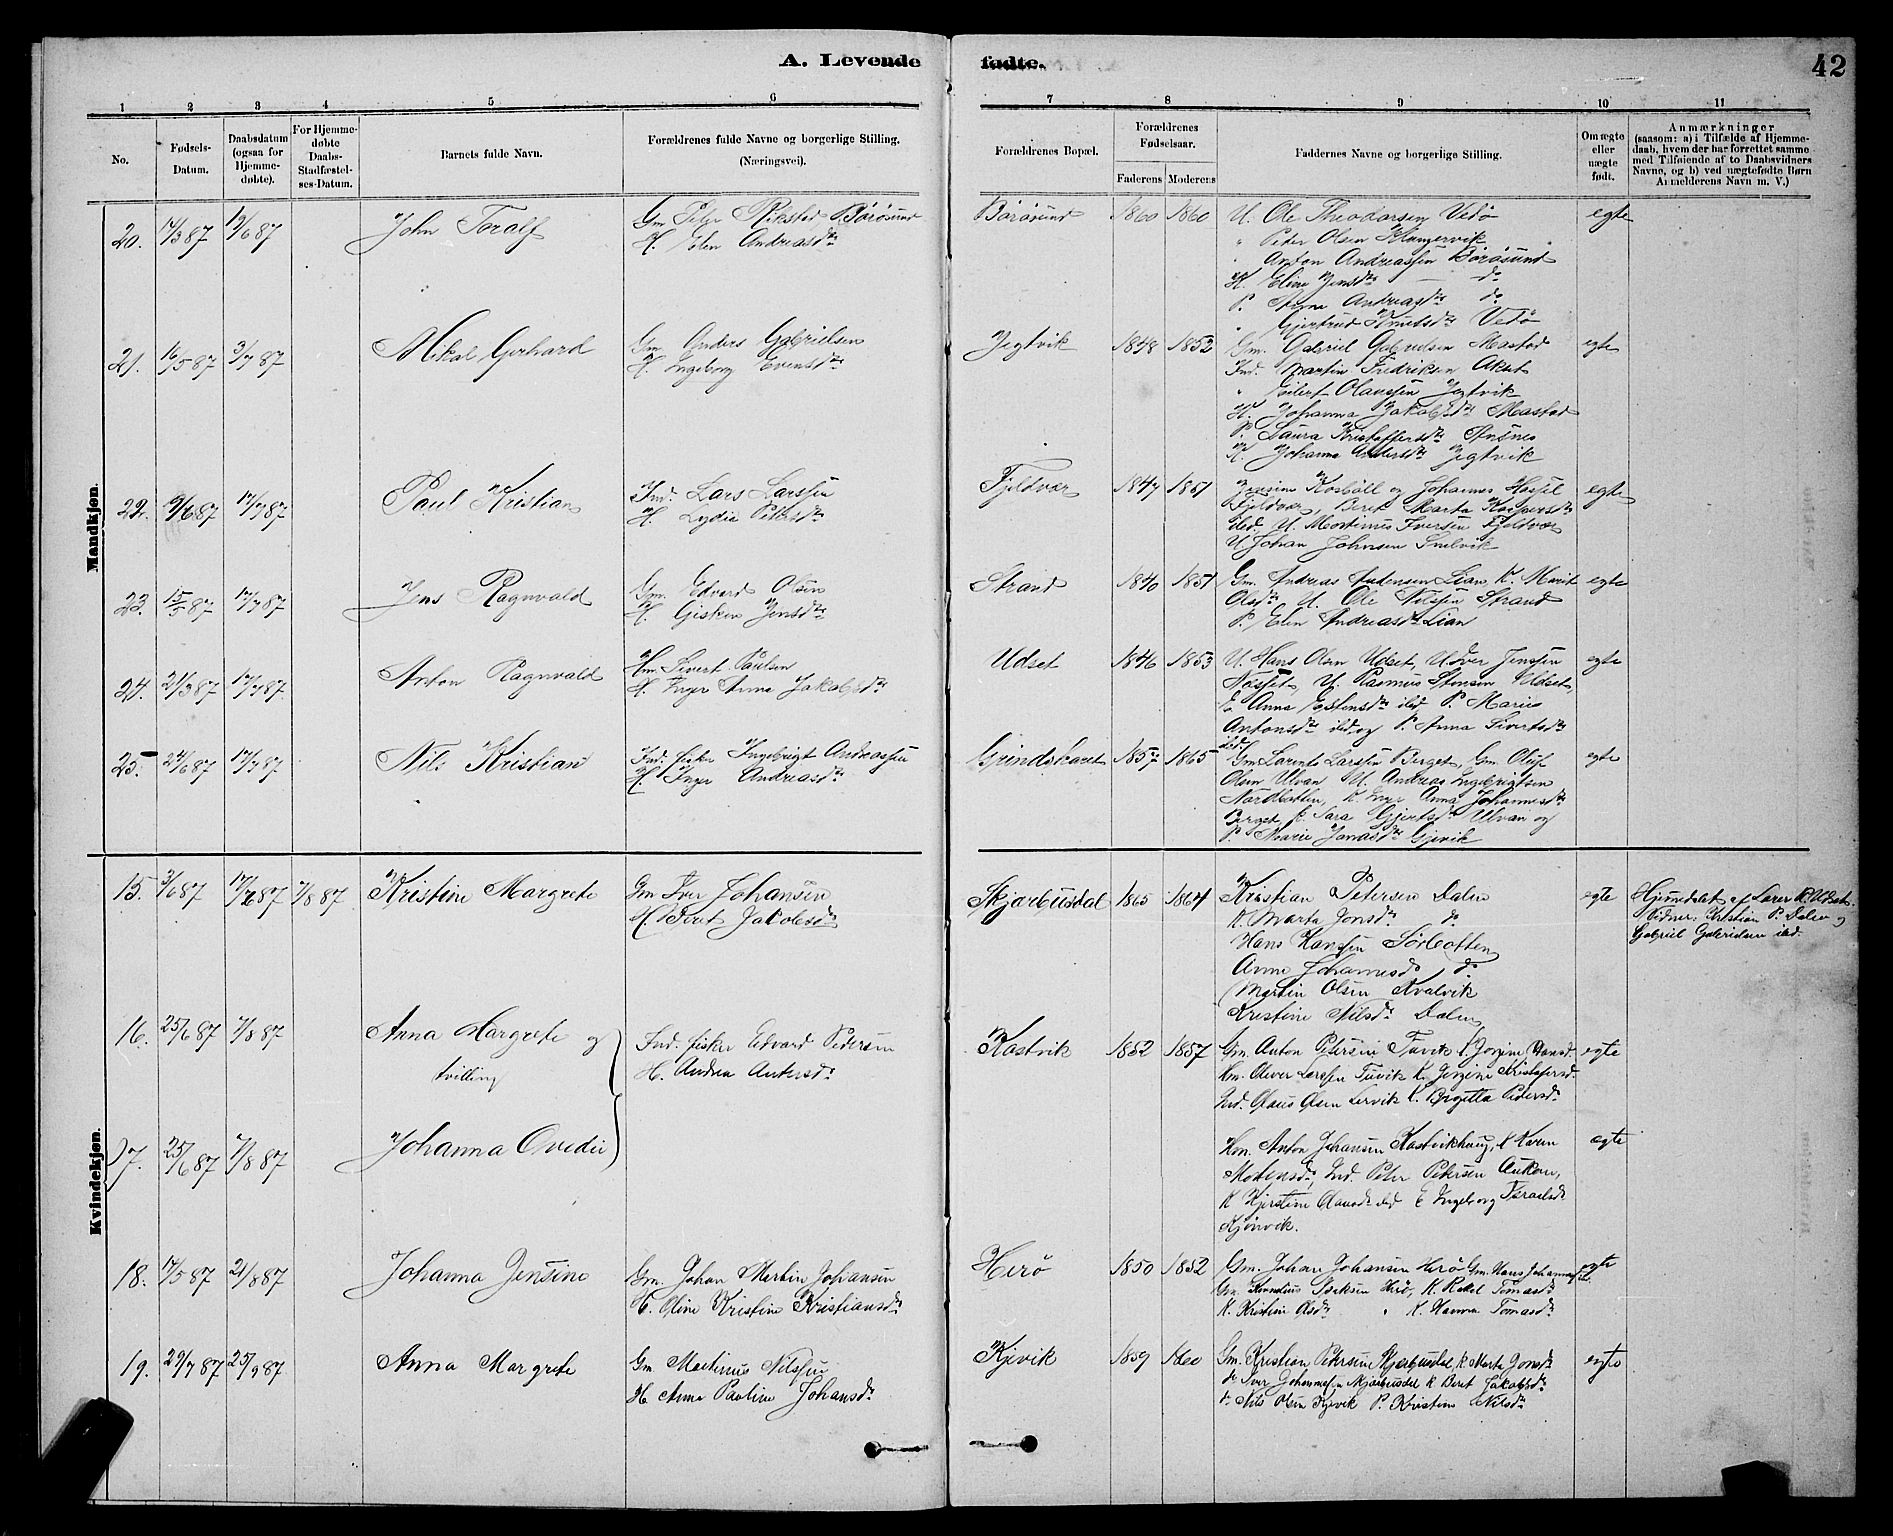 A. Levende fødte.
42
1 2 3 4 5 6 7 8 9 10 11
No.
Fødsels-Datum.
Daabsdatum (ogsaa for Hjemme-døbte).
For Hjemme-døbte Daabs-Stadfæstel-ses-Datum.
Barnets fulde Navn.
Forældrenes fulde Navne og borgerlige Stilling.
(Næringsvei).
Forældrenes Bopæl.
Forældrenes Fødselsaar.
Faderens Moderens
Faddernes Navne og borgerlige Stilling.
Om ægte eller uægte født.
Anmærkninger
(saasom: a) i Tilfælde af Hjemme-
daab, hvem der har forrettet samme
med Tilføiende af to Daabsvidners
Navne, og b) ved uægtefødte Børn
Anmelderens Navn m. V.)
Mandkjøn.
20. 14/3 87 19/6 87 John Toralf
Gm Peter Rikstad Börösund
H. Elen Andreasdtr
Börösund 1860 1860
U. Ole Theodorsen Vedö
" Peter Olsen Klungervik
" Anton Andreassen Börösund
K. Eline Jensdtr do
P. Anna Andreasdtr do
" Gjertrud Knutsdtr Vedö
egte
21. 16/5 87 3/7 87 Mikal Gerhard
Gm. Anders Gabrielsen
H. Ingeborg Evensdtr
Jegtvik 1848 1852
Gm. Gabriel Gabrielsen Mastad
Ind. Martin Fredriksen Akset
" Eilert Olaussen Jegtvik
K. Johanna Jakobsdtr Mastad
P. Laura Kristoffersdtr Ansnes
K. Johanna Andersdtr Jegtvik
egte
22. 9/6 87 17/7 87 Paul Kristian
Ind. Lars Larssen
H. Lydia Petersdtr
Fjeldvær 1847 1851
Johannes
Fjeldvær, Beret Marta Kaspersdtr
ibid. U. Mortinus Iversen Fjeldvær
U. Johan Johnsen
egte
23. 15/5 87 17/7 87 Jens Ragnvald
Gm. Edvard Olsen
H. Gisken Jensdtr
Strand 1840 1851
Gm. Andreas Andersen Lian, K. Marit
Olsdtr U. Ole Nilssen Strand
P. Elen Andreasdtr Lian
egte
24. 21/3 87 17/7 87 Anton Ragnvald
Hm. Sivert Paulsen
H. Inger Anna Jakobsdtr
Udset 1846 1853
U. Hans Olsen Udset, U. Iver Jenssen
Næsset, U. Rasmus Stensen Udset,
E. Anna Estensdtr ibd P. Marie
Antonsdtr ibd og P. Anna Sivertsdtr
ibd
egte
25. 24/6 87 17/7 87 Nils Kristian
Ind. fisker Ingebrigt Andreassen
H. Inger Andreasdtr
Grindskaret 1857 1865
Gm Larents Larssen Berget, Gm. Oluf
Olsen Ulvan U. Andreas Ingebrigtsen
Nordbotten, K. Inger Anna Johannesdtr
Berget K. Sara Gjertsdtr Ulvan og
P. Marie Jonasdtr Gjevik
egte
Kvindekjøn.
15. 3/6 87 17/7 87 7/8 87 Kristine Margrete
Gm Iver Johansen
H. Beret Jakobsdtr
Skjærbusdal 1865 1864
Kristian Petersen Dalen
K. Marta Jonsdtr do
Hans Hanssen Sörbotten
Anne Johannesdtr do
Martin Olsen Kvalvik
Kristine Nilsdtr Dalen
egte
Hjemdøbt af Lærer R. Udset.
Vidner: Kristian P. Dalen og
Gabriel Gabrielsen ibd.
16. 25/6 87 7/8 87 Anna Margrete og
tvilling
Ind. fisker Edvard Pedersen
H. Andrea Antonsdtr
Kastvik 1852 1857
Gm. Anton Petersen Tuvik K. Jörgine Hansdtr
Hm. Oliver Larssen Tuvik K. Jörgine Kristofersdtr
Ind. Olaus Olsen Lervik K. Birgitta Pedersdtr
egte
17. 25/6 87 7/8 87 Johanna Ovedie
Hm. Anton Johansen Kastvikhaug, K Karen
Mortensdtr, Ind. Peter Petersen Aukan,
K Kjerstine Olausdtr ibd E Ingeborg Israelsdtr
Kjönvik.
egte
18. 17/5 87 21/8 87 Johanna Jensine
Gm. Johan Martin Johansen
H. Oline Kristine Kristiansdtr
Herö 1850 1852
Gm. Johan Johansen Herö Gm. Hans Johannessen
Gm. Kornelius Isaksen Herö, K. Rakel Tomasdtr
K. Kristine Olsdtr " K. Hanna Tomasdtr
egte
19. 29/7 87 25/9 87 Anna Margrete
Gm Martinus Nilssen
H Anna Pauline Johansdtr
Kjevik 1859 1860
Gm. Kristian Petersen Skjærbusdal, K. Marta Jonsdtr
do Iver Johannessen Skjærbusdal K Beret Jakobsdtr
do Nils Olsen Kjevik P. Kristine Nilsdtr
egte